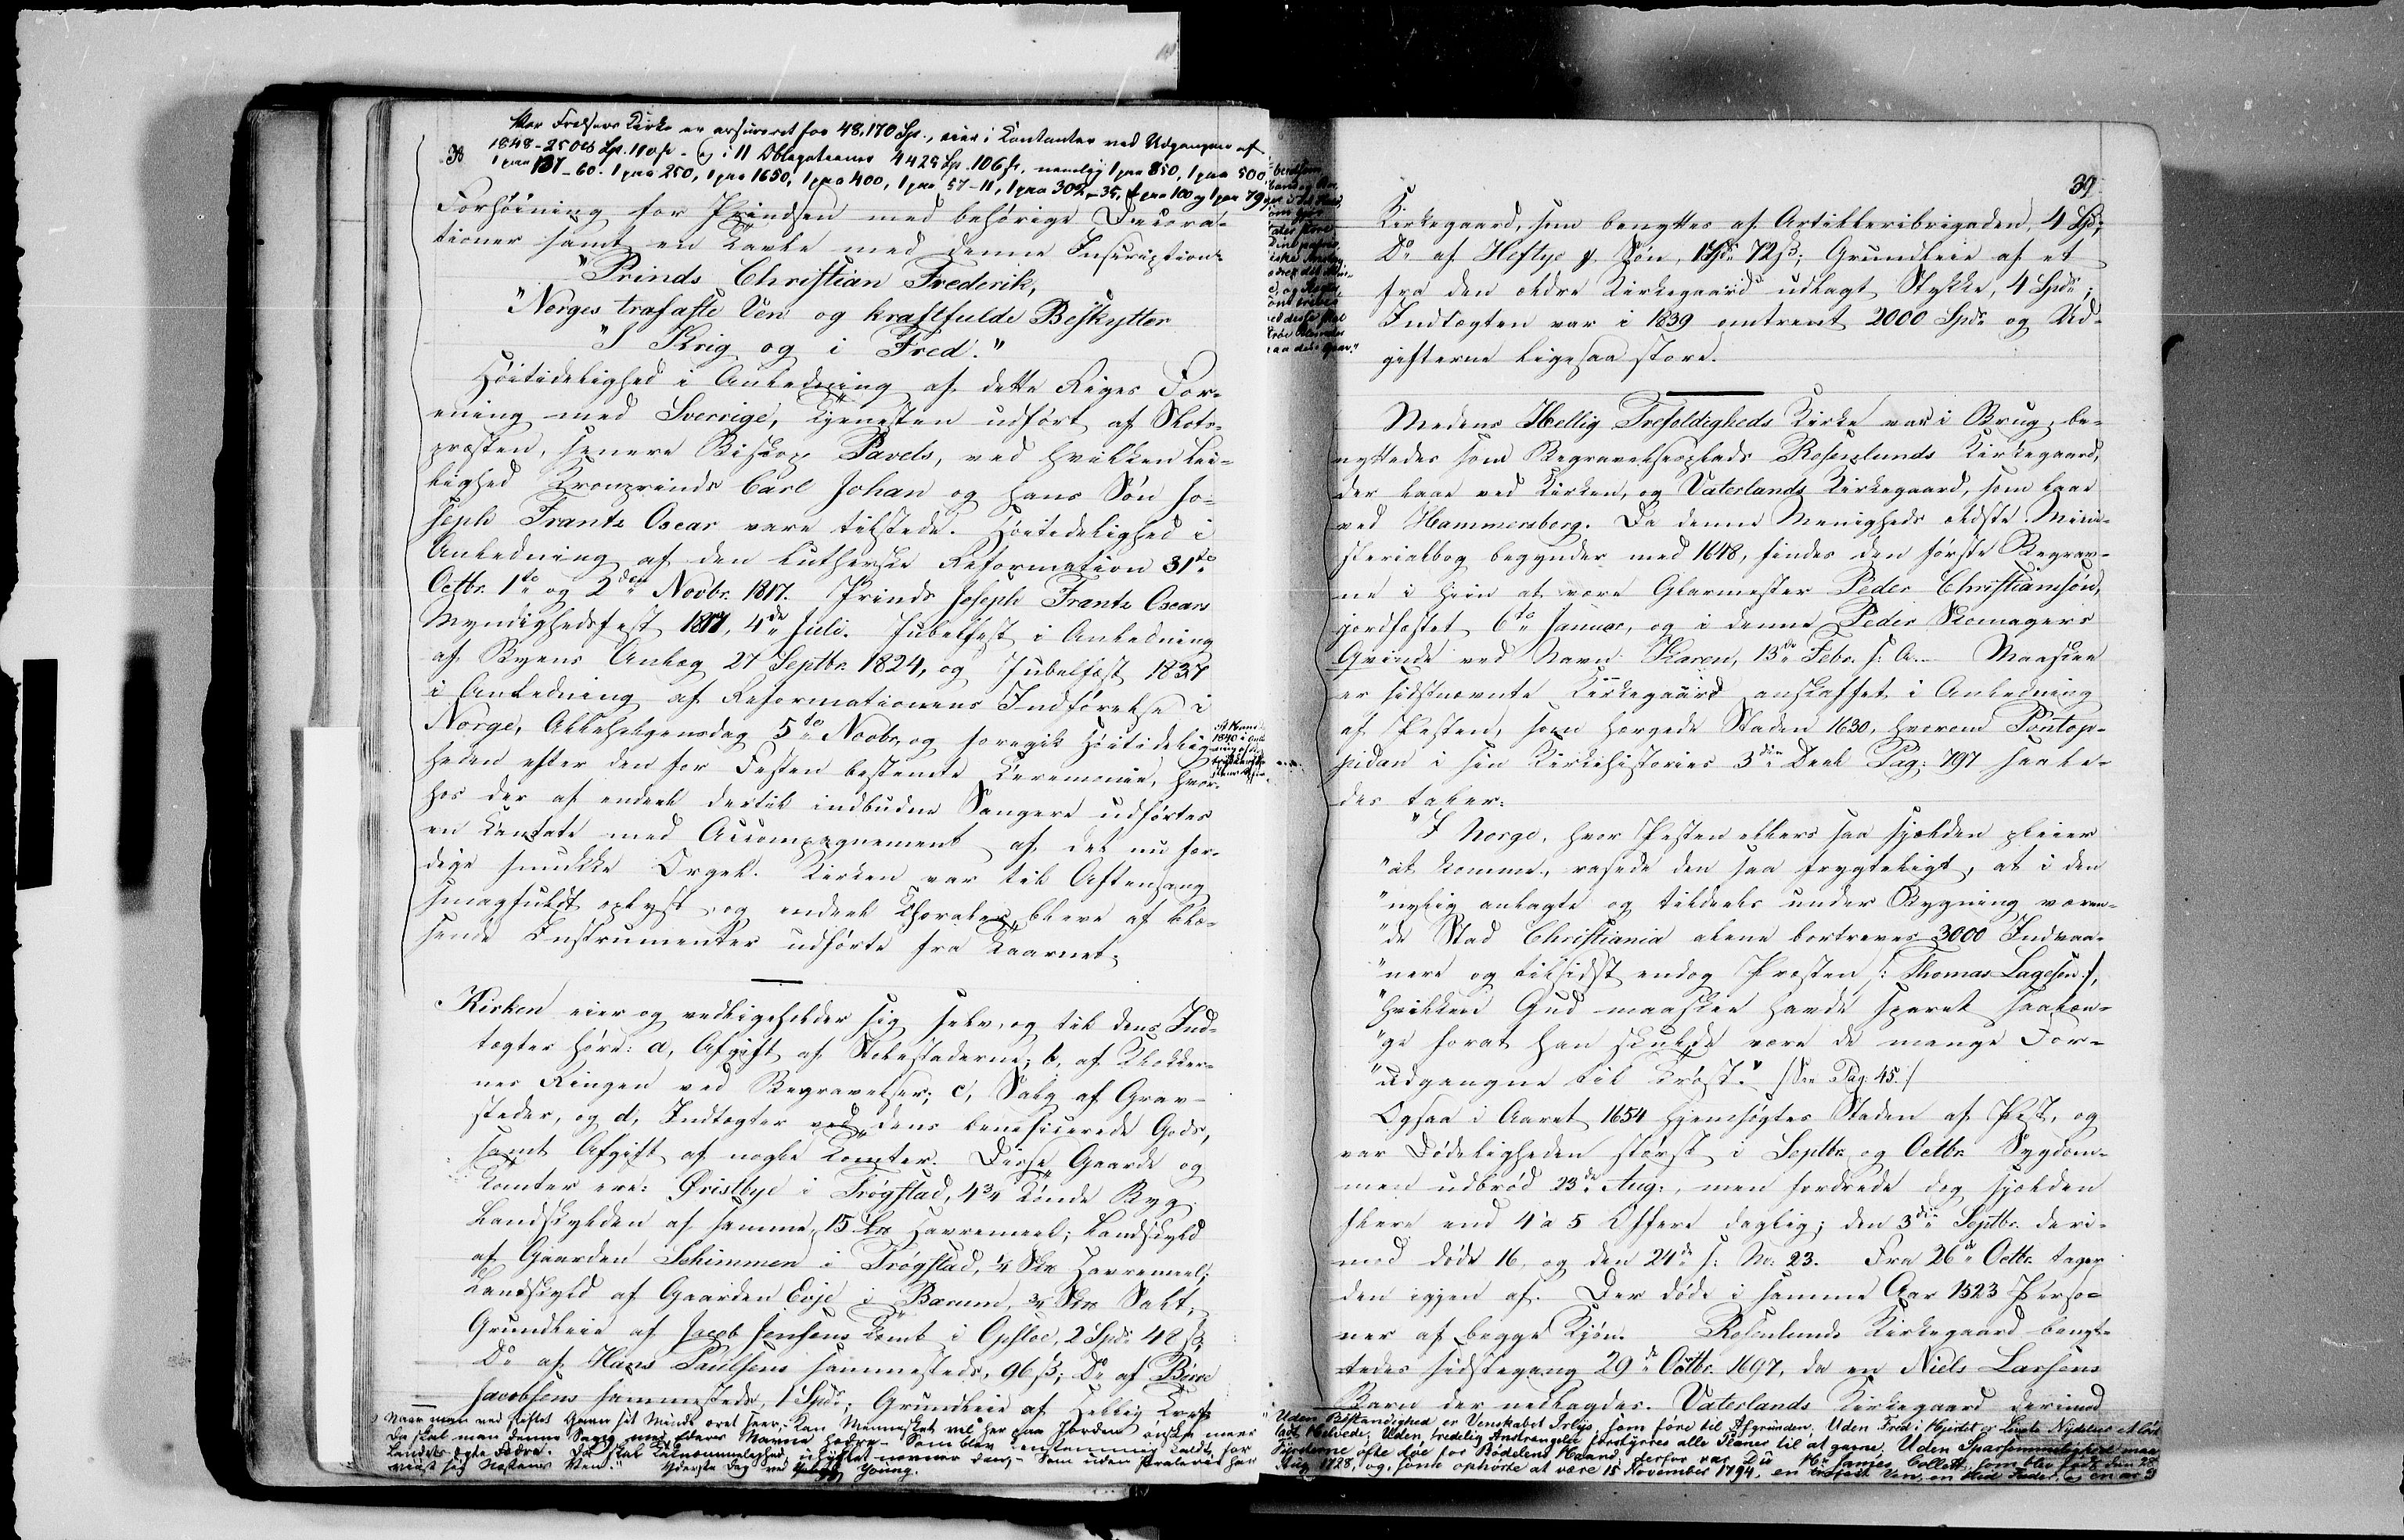 Vor Frelsers Kirke er assureret for 48,170 Sp., eier i Contanter ved Udgangen af
1848 - Sp. 110 ß - og i 11 Obligationer 4425 Sp. 106 ß, nemlig 1 paa 850, 1 paa 500
38
1 paa 137-60. 1 paa 250, 1 paa 1650, 1 paa 400, 1 paa 57-11, 1 paa 302-35, 1 paa 100 og 1 paa 79
Forhöining for Prindsen med behörige Decora-
tioner samt en Tavle med denne Inscription:
"Prinds Christian Frederik,
"Norges trofaste Ven og kraftfulde Beskytter
"I Krig og i Fred."
Höitidelighed i Anledning af dette Riges For-
ening med Sverrige, Tjenesten udfört af Slots-
præsten, senere Biskop Pavels, ved hvilken Lei-
lighed Kronprinds Carl Johan og hans Sön Jo-
seph Frantz Oscar vare tilstede. Höitidelighed i
Anledning af den lutherske Reformation 31te
Octbr. 1te og 2den Novbr. 1817. Prinds Joseph Frantz Oscars
Myndighedsfest 1817, 4de Juli. Jubelfest i Anledning
af Byens Anlæg 27 Septbr. 1824, og Jubelfest 1837
i Anledning af Reformationens Indförelse i
Norge, Allehelgensdag 5te Novbr, og foregik Höitidelig-
heden efter den for Festen bestemte Ceremonie, hvor-
hos der af endeel dertil indbudne Sangere udförtes
en Cantate med Accompagnement af det nu fær-
dige smukke Orgel. Kirken var til Aftensang
smagfuldt oplyst, og endeel Choraler bleve af blæ-
sende Instrumenter udförte fra Taarnet.
Kirken eier og vedligeholder sig selv, og til dens Ind-
tægter höre: a, Afgift af Stolestaderne; b, af Klokker-
nes Ringen ved Begravelser; c, Salg af Grav-
steder, og d, Indtægter ved dens beneficerede Gods,
samt Afgift af nogle Tomter. Disse Gaarde og
Tomter ere: Öristbye i Trögstad, 4 3/4 Tönde Byg
Landskylden af samme, 15 Havremeel; Landskyld
af Gaarden Schimmen i Trögstad, 1/4 Havremeel;
Landskyld af Gaarden Evje i Bærum, Salt;
Grundleie af Jacob Jensens Tomt i Opsloe, 2 Spd. 48 ß;
Do af Hans Paulsens sammesteds, 96 ß; Do af
Jacobsens sammesteds, 1 Spd; Grundleie af Hellig Kors
Naar man ved Livets
Da skal man denne Sagn med Eders Navne hædre - Som blev enstemmig kaldt for
Landets ægte Fædre.
Yderste Dag ved Young.
39
Kirkegaard, som benyttes af Artilleribrigaden, 4 Spd;
Do af Heftye & Sön, 1 Spd. 72 ß; Grundleie af et
fra den ældre Kirkegaard udlagt Stykke, 4 Spd.;
Indtægten var i 1839 omtrent 2000 Spd. og Ud-
gifterne ligesaa store.
Medens Hellig Trefoldigheds Kirke var i Brug, be-
nyttedes som Begravelsesplads Rosenlunds Kirkegaard,
der laae ved Kirken, og Vaterlands Kirkegaard, som laae
ved Hammersborg. Da denne Menigheds ældste Mini-
sterialbog begynder med 1648, findes den förste Begrav-
ne i hiin at være Glarmester Peder Christiansön,
jordfæstet 6te Januar, og i denne Peder Skomagers
Qvinde ved Navn Karen, 13de Febr. s: A. Maaskee
er sidstnævnte Kirkegaard anskaffet i Anledning
af Pesten, som hærgede Staden 1630, hvorom Pontop-
pidan i sin Kirkehistories 3die Deel Pag: 797 saale-
des taler:
"I Norge, hvor Pesten ellers saa sjelden pleier
"at komme, rasede den saa frygteligt, at i den
"nylig anlagte og tildeels under Bygning væren-
"de Stad Christiania alene bortreves 3000 Indvaa-
"nere og tilsidst endog Præsten /: Thomas Lagesen :/,
"hvilken Gud maaskee havde sparet saalæn-
"ge forat han skulde være de mange For-
"udgangne til Tröst." /: See Pag. 45. :/
Ogsaa i Aaret 1654 hjemsögtes Staden af Pest, og
var Dödeligheden störst i Septbr. og Octbr. Sygdom-
men udbröd 23de Aug:, men fordrede dog sjelden
flere end 4 à 5 Offere daglig; den 3die Septbr. deri-
mod döde 16, og den 24de s: M: 23. Fra 26de Octbr. tager
den igjen af. Der döde i samme Aar 1523 Perso-
ner af begge Kjön. Rosenlunds Kirkegaard benyt-
tedes sidstegang 29de Octbr. 1697, da en Niels Larsens
Barn der nedlagdes. Vaterlands Kirkegaard derimod
Uden Bestandighed er Venskabet Irlys, som före til Afgrunden, Uden Fred i Hjertet er Livets Nydelser et
Uden fredelig Anstrængelse forstyrres alle Planer til at gavne, Uden Sparsommelighed maa
Fyrsterne ofte döe for Bödelens Haand; derfor var Du Hr James Collett, som blev födt den 28
Aug 1728, og sönte ophörte at være 15 November 1794, en trofast Ven, en öm Fader, og en